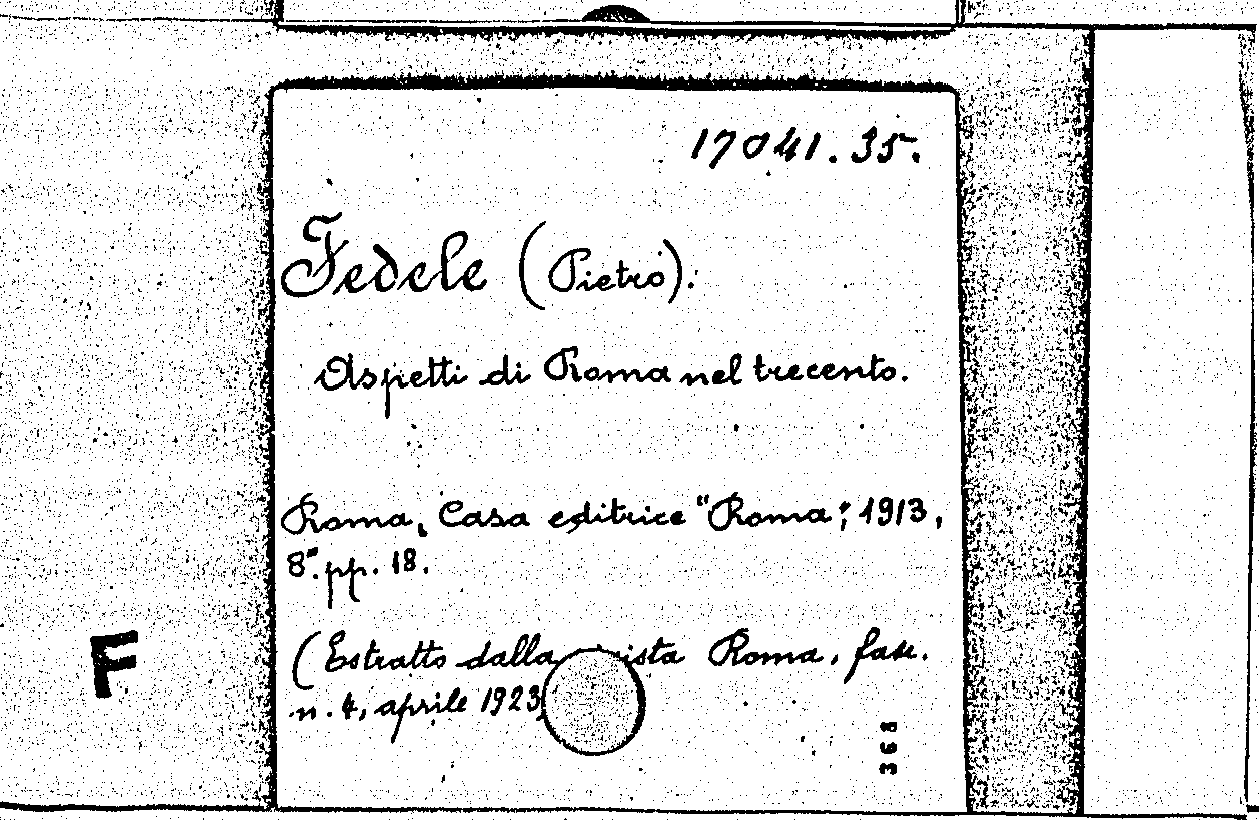 17041.35.
Fedele (Pietro).
Aspetti di Roma nel trecento.
Roma, Casa editrice "Roma", 1913,
8°. pp. 18.
(Estratto dalla ista Roma, fasc.
n. 4, aprile 1923
F
368